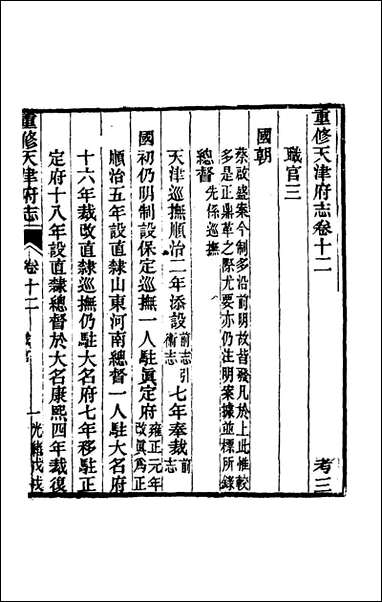 重修天津府志卷十二 考三
職官三
國朝
蔡啟盛案今制多沿前明故皆發凡於上此惟較
多是正鼎革之際尤要亦仍注明案據並標所錄
總督先係巡撫
天津巡撫順治二年添設前志引衛志七年奉裁前志
國初仍明制設保定巡撫一人駐眞定府雍正元年改眞爲正
順治五年設直隸山東河南總督一人駐大名府
十六年裁改直隸巡撫仍駐大名府七年移駐正
定府十八年設直隸總督於大名康熙四年裁復
重修天津府志 卷十二 一 光緒戊戌